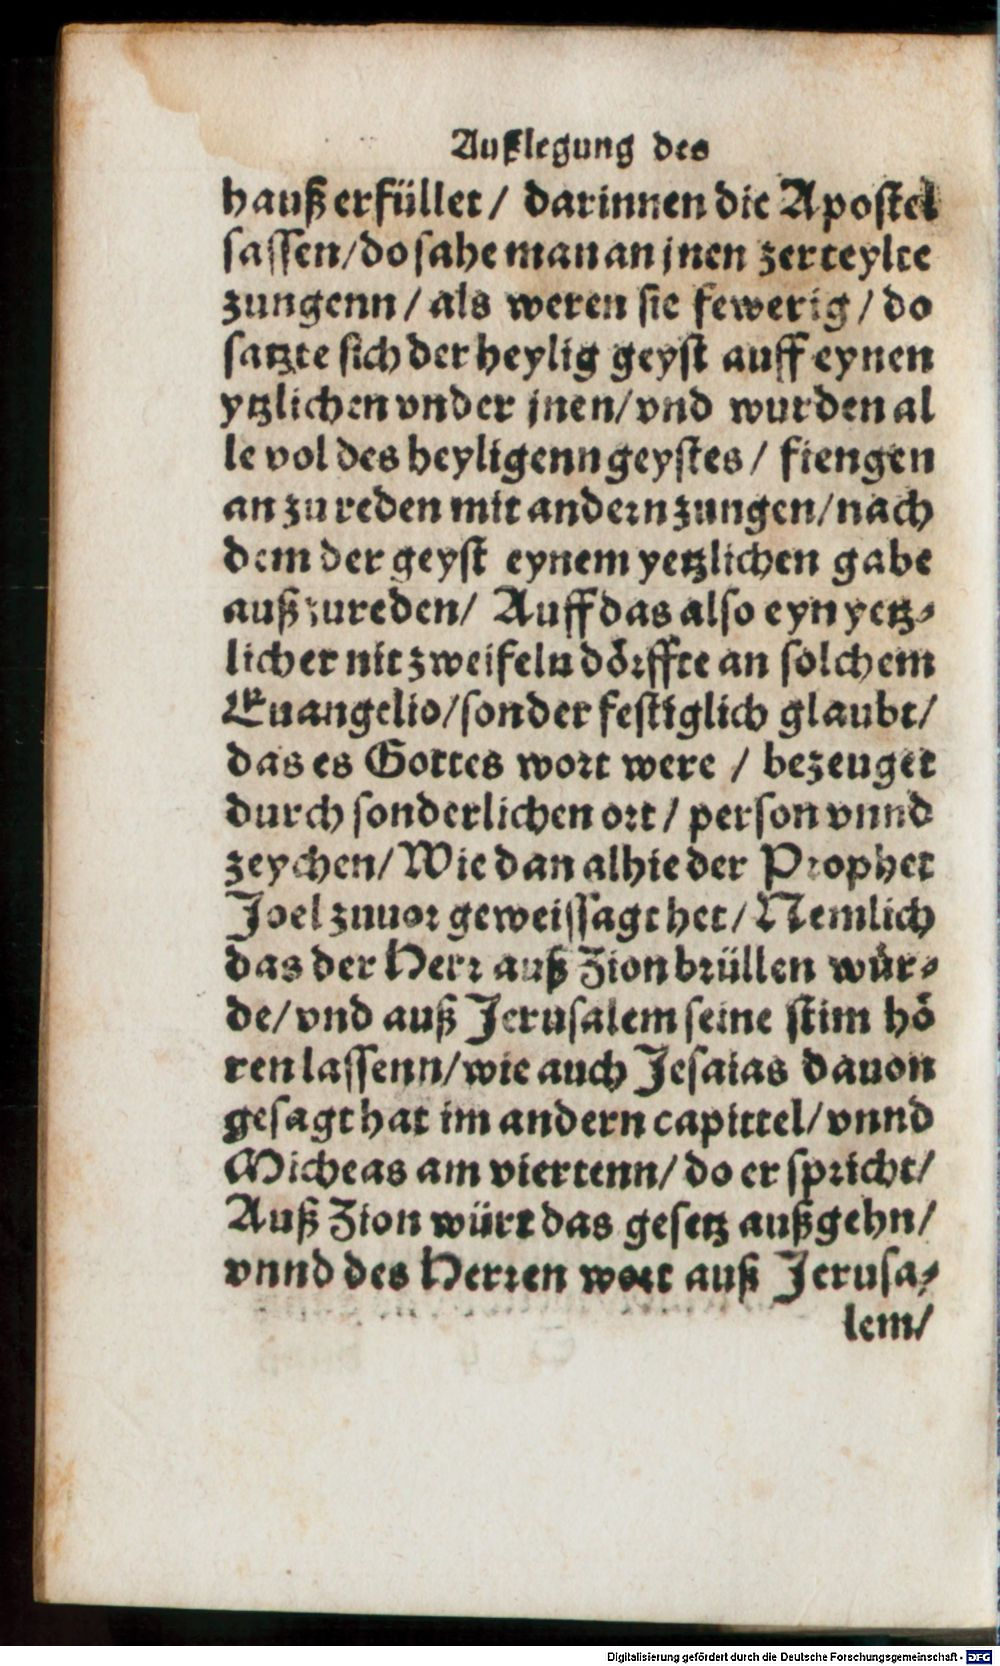 Außlegung des
hauß erfüllet / darinnen die Apostel
sassen/do sahe man an jnen zerteylte
zungenn / als weren sie fewerig / do
satzte sich der heylig geyst auff eynen
ytzlichen vnder jnen/vnd wurden al
le vol des heyligenn geystes / fiengen
an zu reden mit andern zungen/nach
dem der geyst eynem yetzlichen gabe
auß zureden/ Auff das also eyn yetz-
licher nit zweifeln dörffte an solchem
Euangelio/sonder festiglich glaubt/
das es Gottes wort were / bezeuget
durch sonderlichen ort / person vnnd
zeychen/ Wie dan alhie der Prophet
Joel zuuor geweissagt het/ Nemlich
das der Herr auß Zion brüllen wür-
de/vnd auß Jerusalem seine stim hö
ren lassenn/wie auch Jesaias dauon
gesagt hat im andern capittel/vnnd
Micheas am viertenn/ do er spricht/
Auß Zion würt das gesetz außgehn/
vnnd des Herren wort auß Jerusa-
lem/
Digitalisierung gefördert durch die Deutsche Forschungsgemeinschaft - DFG